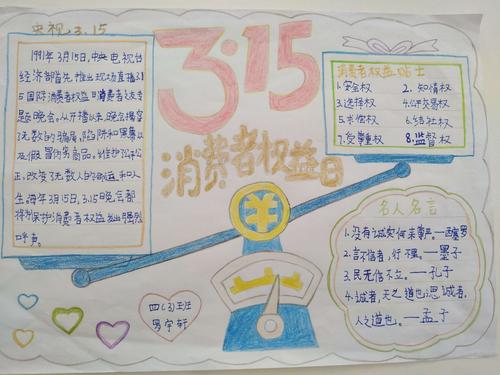 央视3.15
1991年3月15日,中央电视台
经济部首先推出现场直播3.1
5国际消费者权益日消费者之友专
题晚会。从开播以来,晚会揭穿
了无数的骗局,陷阱和黑幕以
及假冒伪劣商品。维护公平公
正,改变了无数人的
生,每年3月15日,3.15晚会都
将为保护消费者权益发出强烈
呼声。
3·15
消费者权益日
消费者权益贴士
1.安全权 2.知情权
3.选择权 4.公平交易权
5.求偿权 6.结社权
7.受尊重权 8.监督权
¥
名人名言
1.没有诚实何来尊严。—西塞罗
2.言不信者,行不果。—墨子
3.民无信不立。—孔子
4.诚者,天之道也;思诚者,
人之道也。—孟子
四(3)班